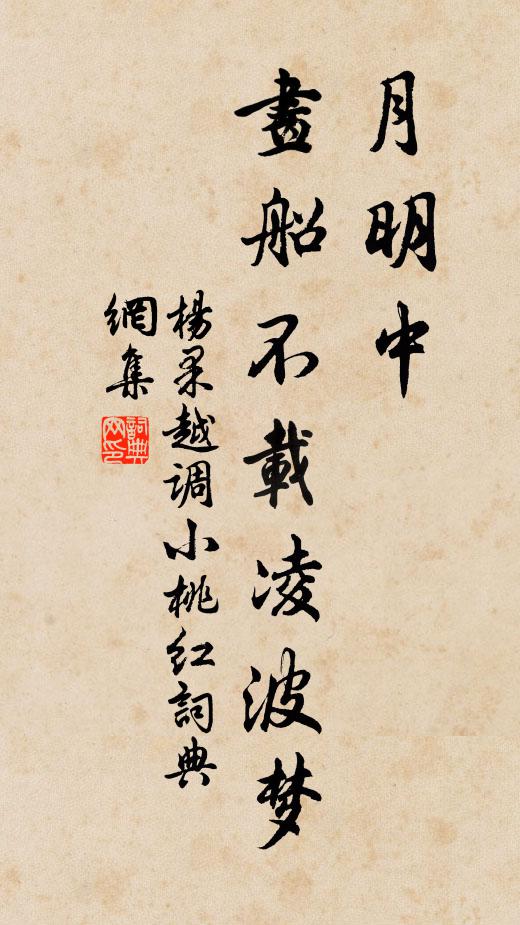 月明中
畫船不載凌波梦
楊果越调小桃红詞典
網集
詞典网印